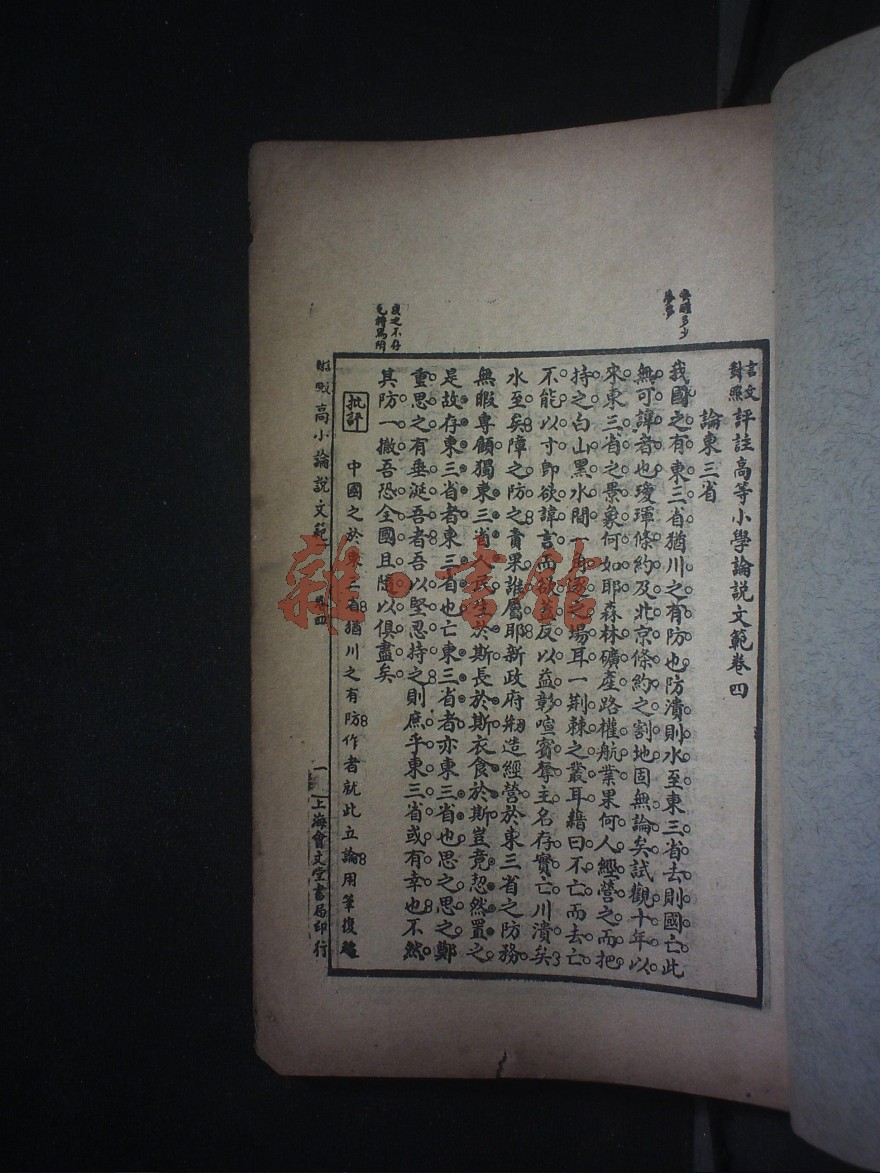 言文對照 評註高等小學論說文範卷四
論東三省
我國之有東三省猶川之有防也防潰則水至東三省去則國亡此
無可諱者也瓊琿條約及北京條約之割地固無論矣試觀十年以
來東三省之景象何如耶森林礦產路權航業果何人經營之而把
持之白山黑水間一角逐之場耳一荆棘之叢耳藉曰不亡而去亡
不能以寸卽欲諱言而欲蓋反以益彰喧賓奪主名存實亡川潰矣
水至矣障之防之責果誰屬耶新政府剏造經營於東三省之防務
無暇專顧獨東三省人民生於斯長於斯衣食於斯豈竟恝然置之
是故存東三省者東三省也亡東三省者亦東三省也思之思之鄭
重思之有垂涎吾者吾以堅忍持之則庶乎東三省或有幸也不然
其防一撤吾恐全國且隨以俱盡矣
批評 中國之於東三省猶川之有防作者就此立論用筆復
高小論說文範 卷四 一 上海會文堂書局印行
喚醒多少
皮之不存
毛將焉附
雜·書館